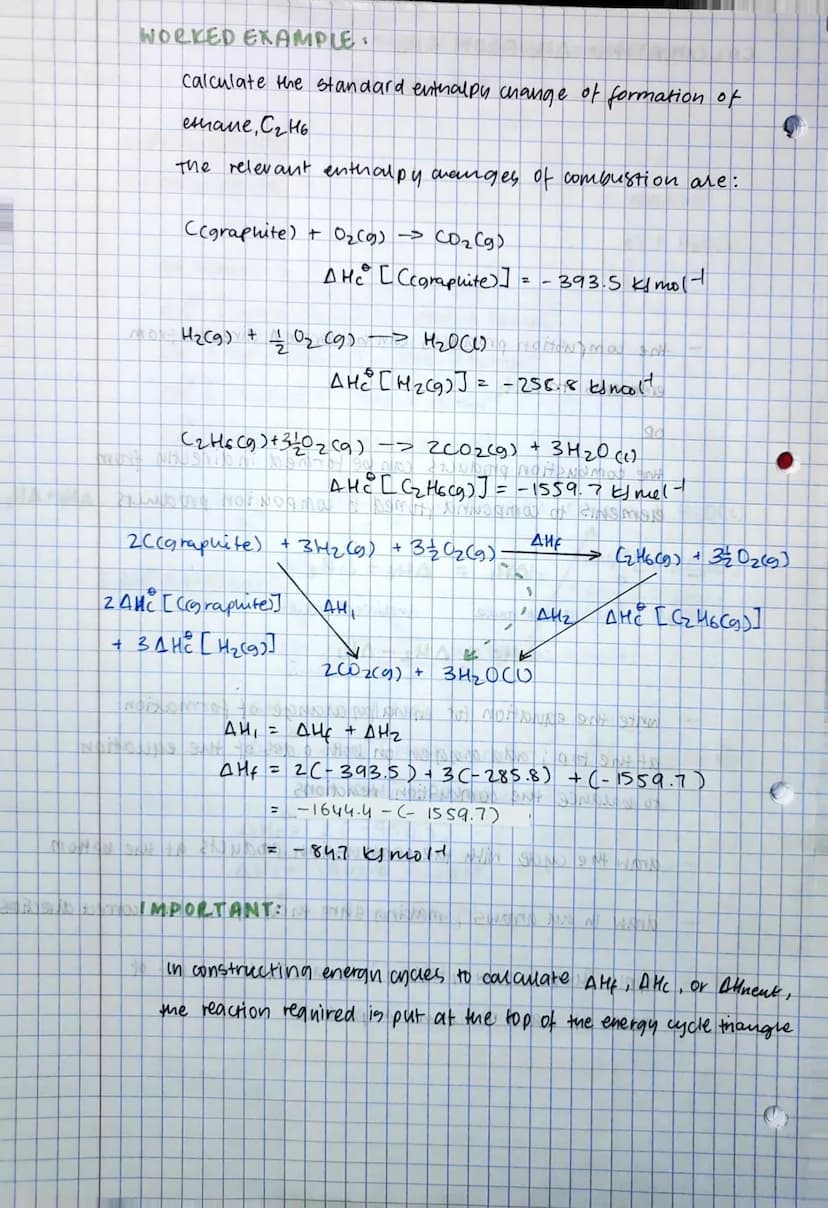 WORKED EXAMPLE:
calculate the standard enthalpy change of formation of
ethane, C₂H₆
The relevant enthalpy changes of combustion are:
C(graphite) + O₂(g) → CO₂(g)
ΔHc⦵ [C(graphite)] = -393.5 kJ mol⁻¹
H₂(g) + ½ O₂ (g) → H₂O(l)
ΔHc⦵ [H₂(g)] = -258.8 kJ mol⁻¹
C₂H₆(g) + 3½O₂(g) → 2CO₂(g) + 3H₂O (l)
ΔHc⦵ [C₂H₆(g)] = -1559.7 kJ mol⁻¹
2C(graphite) + 3H₂(g) + 3½O₂(g) ΔHf → C₂H₆(g) + 3½O₂(g)
2ΔHc⦵ [C(graphite)] ΔH₁ ΔH₂ ΔHc⦵ [C₂H₆(g)]
+ 3ΔHc⦵ [H₂(g)]
2CO₂(g) + 3H₂O(l)
ΔH₁ = ΔHf + ΔH₂
ΔHf = 2(-393.5) + 3(-285.8) + (-1559.7)
= -1644.4 - (-1559.7)
= -84.7 kJ mol⁻¹
IMPORTANT:
in constructing energy cycles to calculate ΔHf, ΔHc, or ΔHneut,
the reaction required is put at the top of the energy cycle triangle